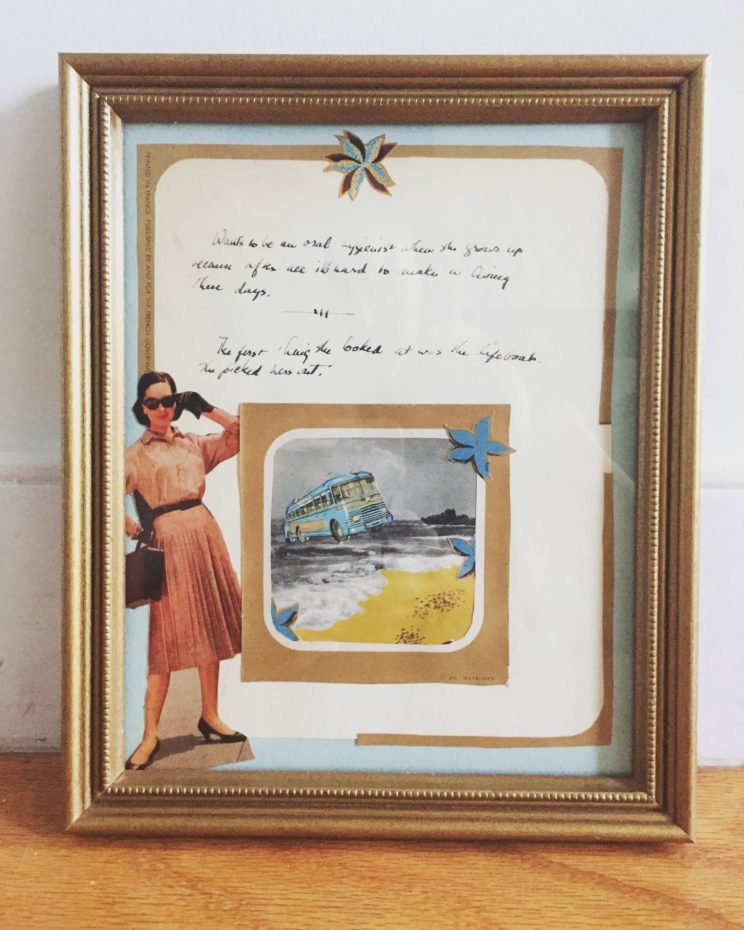 PRINTED IN FRANCE PUBLISHED BY AND FOR THE FRENCH GOVERN
Wants to be an oral hygienist when she grows up
because after all it's hard to make a living
these days.
The first thing she looked at was the lifeboats.
She picked hers out.